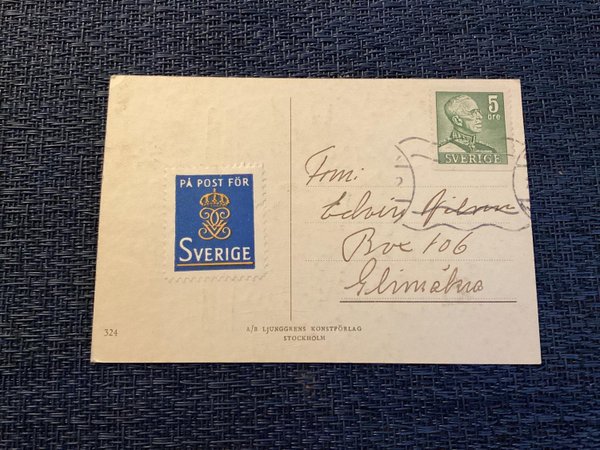 5
öre
SVERIGE
PÅ POST FÖR
SVERIGE
Edvin
Box 106
Glimåkra
324
A/B LJUNGGRENS KONSTFÖRLAG
STOCKHOLM